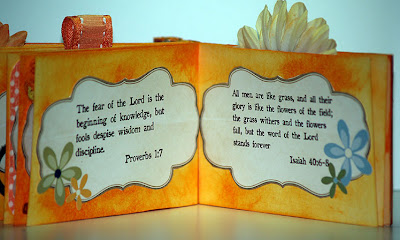 The fear of the Lord is the
beginning of knowledge, but
fools despise wisdom and
discipline.
Proverbs 1:7
All men are like grass, and all their
glory is like the flowers of the field;
the grass withers and the flowers
fall, but the word of the Lord
stands forever
Isaiah 40:6-8